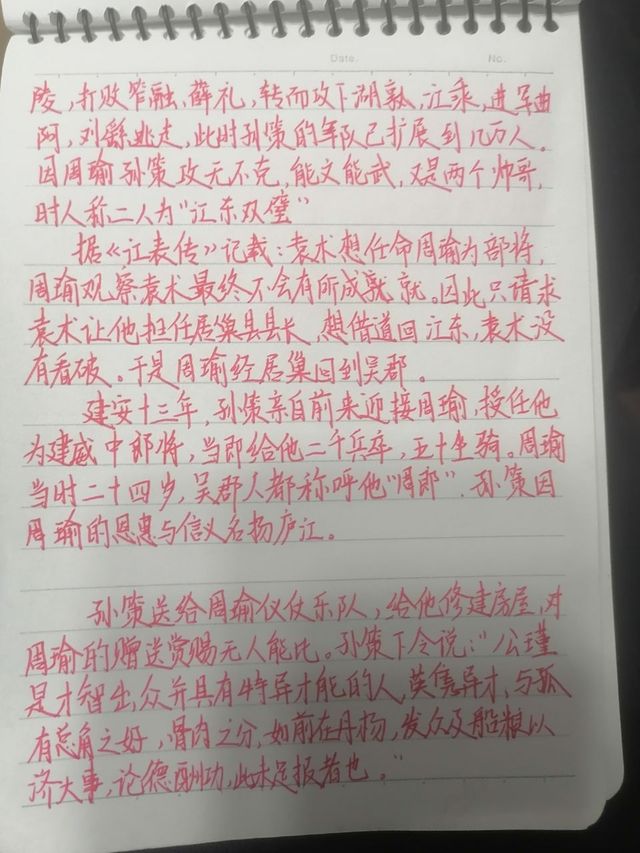 Date.
No.
陵，打败笮融、薛礼，转而攻下湖孰、江乘，进军曲
阿，刘繇逃走，此时孙策的军队已扩展到几万人。
因周瑜孙策攻无不克，能文能武，又是两个帅哥，
时人称二人为“江东双璧”
据《江表传》记载：袁术想任命周瑜为部将，
周瑜观察袁术最终不会有所成就就。因此只请求
袁术让他担任居巢县县长，想借道回江东，袁术没
有看破。于是周瑜经居巢回到吴郡。
建安十三年，孙策亲自前来迎接周瑜，授任他
为建威中郎将，当即给他二千兵卒，五十坐骑。周瑜
当时二十四岁，吴郡人都称呼他“周郎”．孙策因
周瑜的恩惠与信义名扬庐江。
孙策送给周瑜仪仗乐队，给他修建房屋，对
周瑜的赠送赏赐无人能比。孙策下令说：“公瑾
是才智出众并具有特异才能的人，英隽异才，与孤
有总角之好，骨肉之分，如前在丹杨，发众及船粮以
济大事，论德酬功，此未足报者也。”